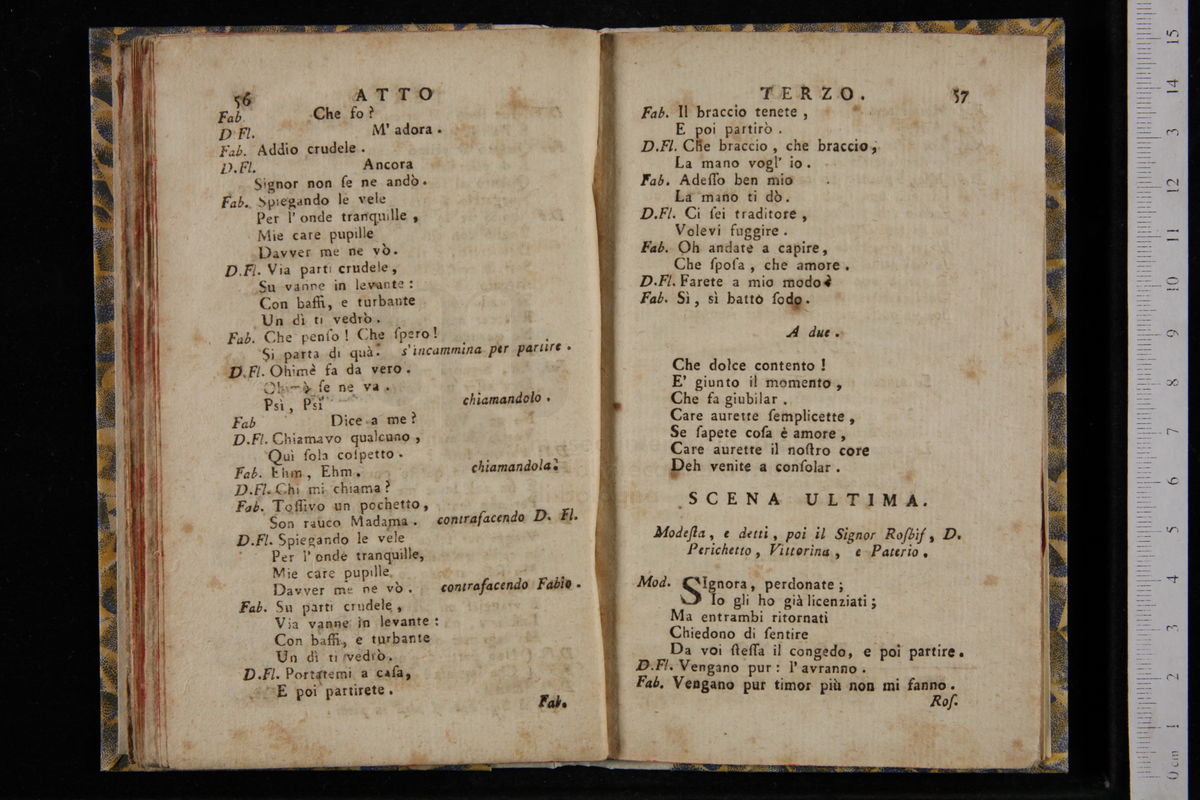 56 ATTO
Fab. Che fo?
D Fl. M' adora.
Fab. Addio crudele.
D.Fl. Ancora
Signor non ſe ne andò.
Fab. Spiegando le vele
Per l' onde tranquille,
Mie care pupille
Davver me ne vò.
D.Fl. Via parti crudele,
Su vanne in levante:
Con baffi, e turbante
Un dì ti vedrò.
Fab. Che penſo! Che ſpero!
Si parta di quà. s'incammina per partire.
D.Fl. Ohimè fa da vero.
Ohimè ſe ne va.
Psì, Psì chiamandolo.
Fab Dice a me?
D.Fl. Chiamavo qualcuno,
Qui ſola coſpetto.
Fab. Ehm, Ehm. chiamandola.
D.Fl. Chi mi chiama?
Fab. Toſſivo un pochetto,
Son rauco Madama. contrafacendo D. Fl.
D.Fl. Spiegando le vele
Per l' onde tranquille,
Mie care pupille
Davver me ne vò. contrafacendo Fabio.
Fab. Su parti crudele,
Via vanne in levante:
Con baffi, e turbante
Un dì ti vedrò.
D.Fl. Portatemi a caſa,
E poi partirete.
Fab.
TERZO. 57
Fab. Il braccio tenete,
E poi partirò.
D.Fl. Che braccio, che braccio,
La mano vogl' io.
Fab. Adeſſo ben mio
La mano ti dò.
D.Fl. Ci ſei traditore,
Volevi fuggire.
Fab. Oh andate a capire,
Che ſpoſa, che amore.
D.Fl. Farete a mio modo?
Fab. Sì, sì batto ſodo.
A due.
Che dolce contento!
E' giunto il momento,
Che fa giubilar.
Care aurette ſemplicette,
Se ſapete coſa è amore,
Care aurette il noſtro core
Deh venite a conſolar.
SCENA ULTIMA.
Modeſta, e detti, poi il Signor Roſbiſ, D.
Perichetto, Vittorina, e Paterio.
Mod. SIgnora, perdonate;
Io gli ho già licenziati;
Ma entrambi ritornati
Chiedono di ſentire
Da voi ſteſſa il congedo, e poi partire.
D.Fl. Vengano pur: l' avranno.
Fab. Vengano pur timor più non mi fanno.
Roſ.
0 cm 1 2 3 4 5 6 7 8 9 10 11 12 3 14 15